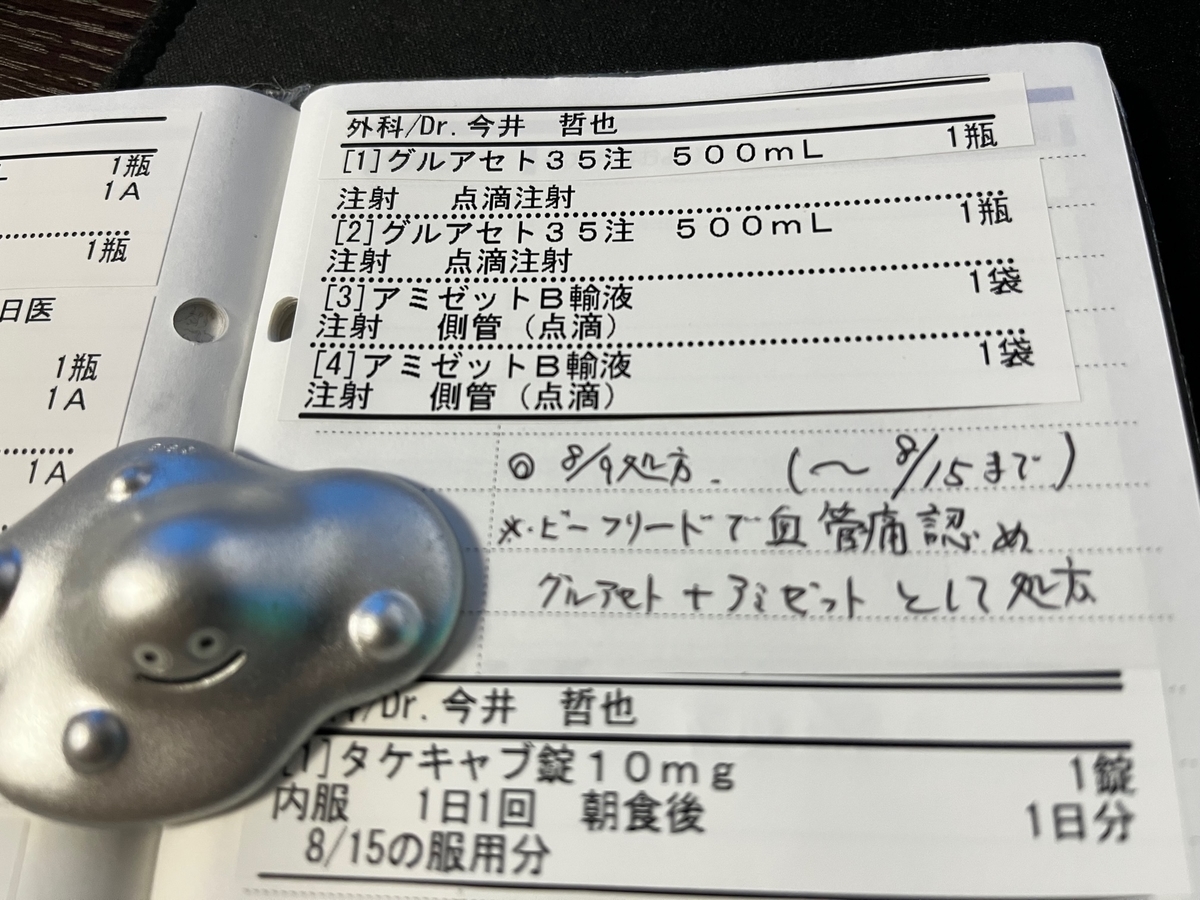 1瓶
1A
1瓶
日医
1瓶
1A
1A
外科/Dr.今井 哲也
[1]グルアセト35注 500mL 1瓶
注射 点滴注射
[2]グルアセト35注 500mL 1瓶
注射 点滴注射
[3]アミゼットB輸液 1袋
注射 側管(点滴)
[4]アミゼットB輸液 1袋
注射 側管(点滴)
◎ 8/9処方. (〜8/15まで)
※・ビーフリードで血管痛認め
グルアセト+アミゼットとして処方
/Dr.今井 哲也
[1]タケキャブ錠10mg 1錠
内服 1日1回 朝食後 1日分
8/15の服用分